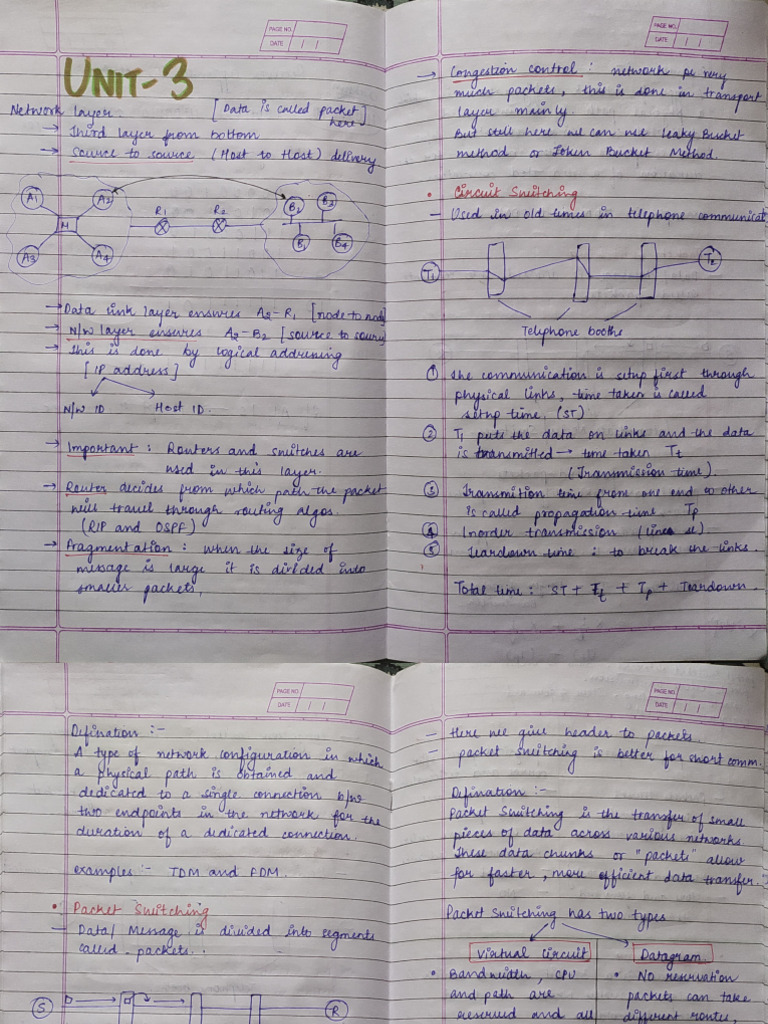 PAGE NO.
DATE
UNIT-3
Network layer [Data is called packet]
here
→ Third layer from bottom
→ Source to source (Host to Host) delivery
A1 A2 R1 R2 B1 B2
M
A3 A4 B1 B4
→ Data link layer ensures A2-R1 [node to node]
→ N/w layer ensures A2-B2 [source to source]
→ This is done by logical addressing
[IP address]
N/W ID Host ID.
→ Important : Routers and switches are
used in this layer.
→ Router decides from which path the packet
will travel through routing algos.
(RIP and OSPF)
→ Fragmentation : when the size of
message is large it is divided into
smaller packets,
PAGE NO.
DATE
→ Congestion control : network pe very
much packets, this is done in transport
layer mainly.
But still here we can use leaky Bucket
method or Token Bucket Method.
• Circuit Switching
- Used in old times in telephone communicat
T1 T2
Telephone booths
① The communication is setup first through
physical links, time taken is called
setup time. (ST)
② T1 puts the data on links and the data
is transmitted → time taken Tt
(Transmission time).
③ Transmition time from one end to other
is called propagation time. Tp
④ Inorder transmission (line se)
⑤ Teardown time : to break the links.
Total time : ST + Tt + Tp + Teardown.
PAGE NO.
DATE
Defination :-
A type of network configuration in which
a physical path is obtained and
dedicated to a single connection b/w
two endpoints in the network for the
duration of a dedicated connection.
examples :- TDM and FDM.
• Packet Switching
- Data/Message is divided into segments
called packets.
S R
PAGE NO.
DATE
- Here we give header to packets.
- packet switching is better for short comm.
Defination :-
Packet Switching is the transfer of small
pieces of data across various networks.
These data chunks or "packets" allow
for faster, more efficient data transfer."
Packet switching has two types
Virtual Circuit Datagram
• Bandwidth, CPU
and path are
reserved and all
• No reservation
packets can take
different route,